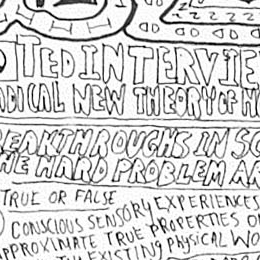 TED INTERVIE
ADICAL NEW THEORY OF H
REAKTHROUGHS IN SC
HE HARD PROBLEM AR
TRUE OR FALSE
CONSCIOUS SENSORY EXPERIENCES
APPROXIMATE TRUE PROPERTIES O
EXISTING PHYSICAL WO